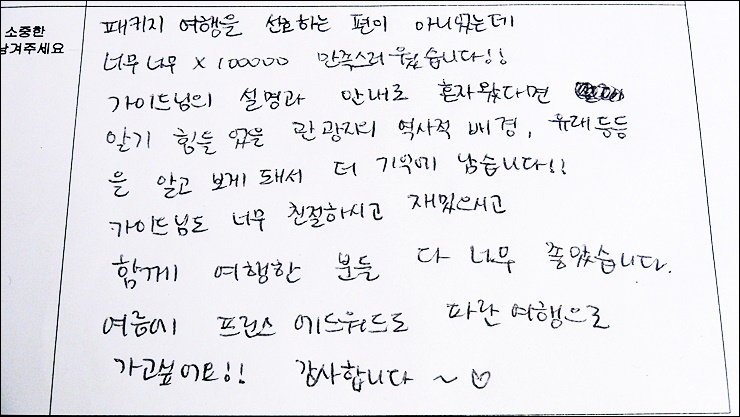 소중한
남겨주세요
패키지 여행을 선호하는 편이 아니였는데
너무너무 x 100000 만족스러웠습니다!!
가이드님의 설명과 안내로 혼자왔다면
알기 힘들었을 관광지의 역사적 배경, 유래등등
을 알고 보게 돼서 더 기억에 남습니다!!
가이드님도 너무 친절하시고 재밌으시고
함께 여행한 분들 다 너무 좋았습니다.
여름에 프린스 에드워드도 파란여행으로
가고싶어요!! 감사합니다 ~ ♡